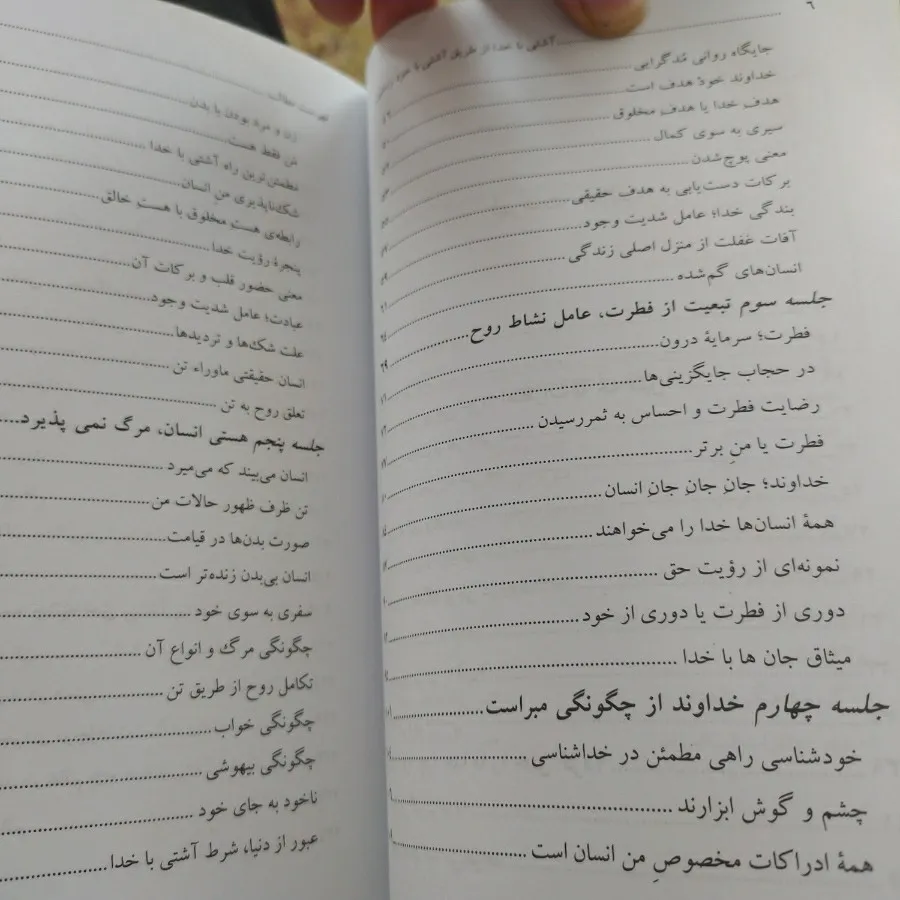 ۶
آشتی با خدا از طریق آشتی با خود
جایگاه روانی مُدگرایی
خداوند خودْ هدف است
هدفِ خدا یا هدفِ مخلوق
سیری به سوی کمال
معنی پوچ‌شدن
برکات دست‌یابی به هدف حقیقی
بندگی خدا؛ عامل شدیت وجود
آفات غفلت از منزل اصلی زندگی
انسان‌های گم‌شده
جلسه سوم تبعیت از فطرت، عامل نشاط روح
فطرت؛ سرمایهٔ درون
در حجاب جایگزینی‌ها
رضایت فطرت و احساس به ثمررسیدن
فطرت یا منِ برتر
خداوند؛ جانِ جانِ جانِ انسان
همهٔ انسان‌ها خدا را می‌خواهند
نمونه‌ای از رؤیت حق
دوری از فطرت یا دوری از خود
میثاق جان ها با خدا
جلسه چهارم خداوند از چگونگی مبراست
خودشناسی راهی مطمئن در خداشناسی
چشم و گوش ابزارند
همهٔ ادراکات مخصوصِ من انسان است
زن و مرد بودن یا بدن
من فقط هست
مطمئن‌ترین راه آشتی با خدا
شک‌ناپذیری منِ انسان
رابطه‌ی هستِ مخلوق با هستِ خالق
پنجرهٔ رؤیت خدا
معنی حضور قلب و برکات آن
عبادت؛ عامل شدیت وجود
علت شک‌ها و تردیدها
انسان حقیقتی ماوراء تن
تعلق روح به تن
جلسه پنجم هستی انسان، مرگ نمی پذیرد
انسان می‌بیند که می‌میرد
تن ظرف ظهور حالات من
صورت بدن‌ها در قیامت
انسان بی‌بدن زنده‌تر است
سفری به سوی خود
چگونگی مرگ و انواع آن
تکامل روح از طریق تن
چگونگی خواب
چگونگی بیهوشی
ناخود به جای خود
عبور از دنیا، شرط آشتی با خدا